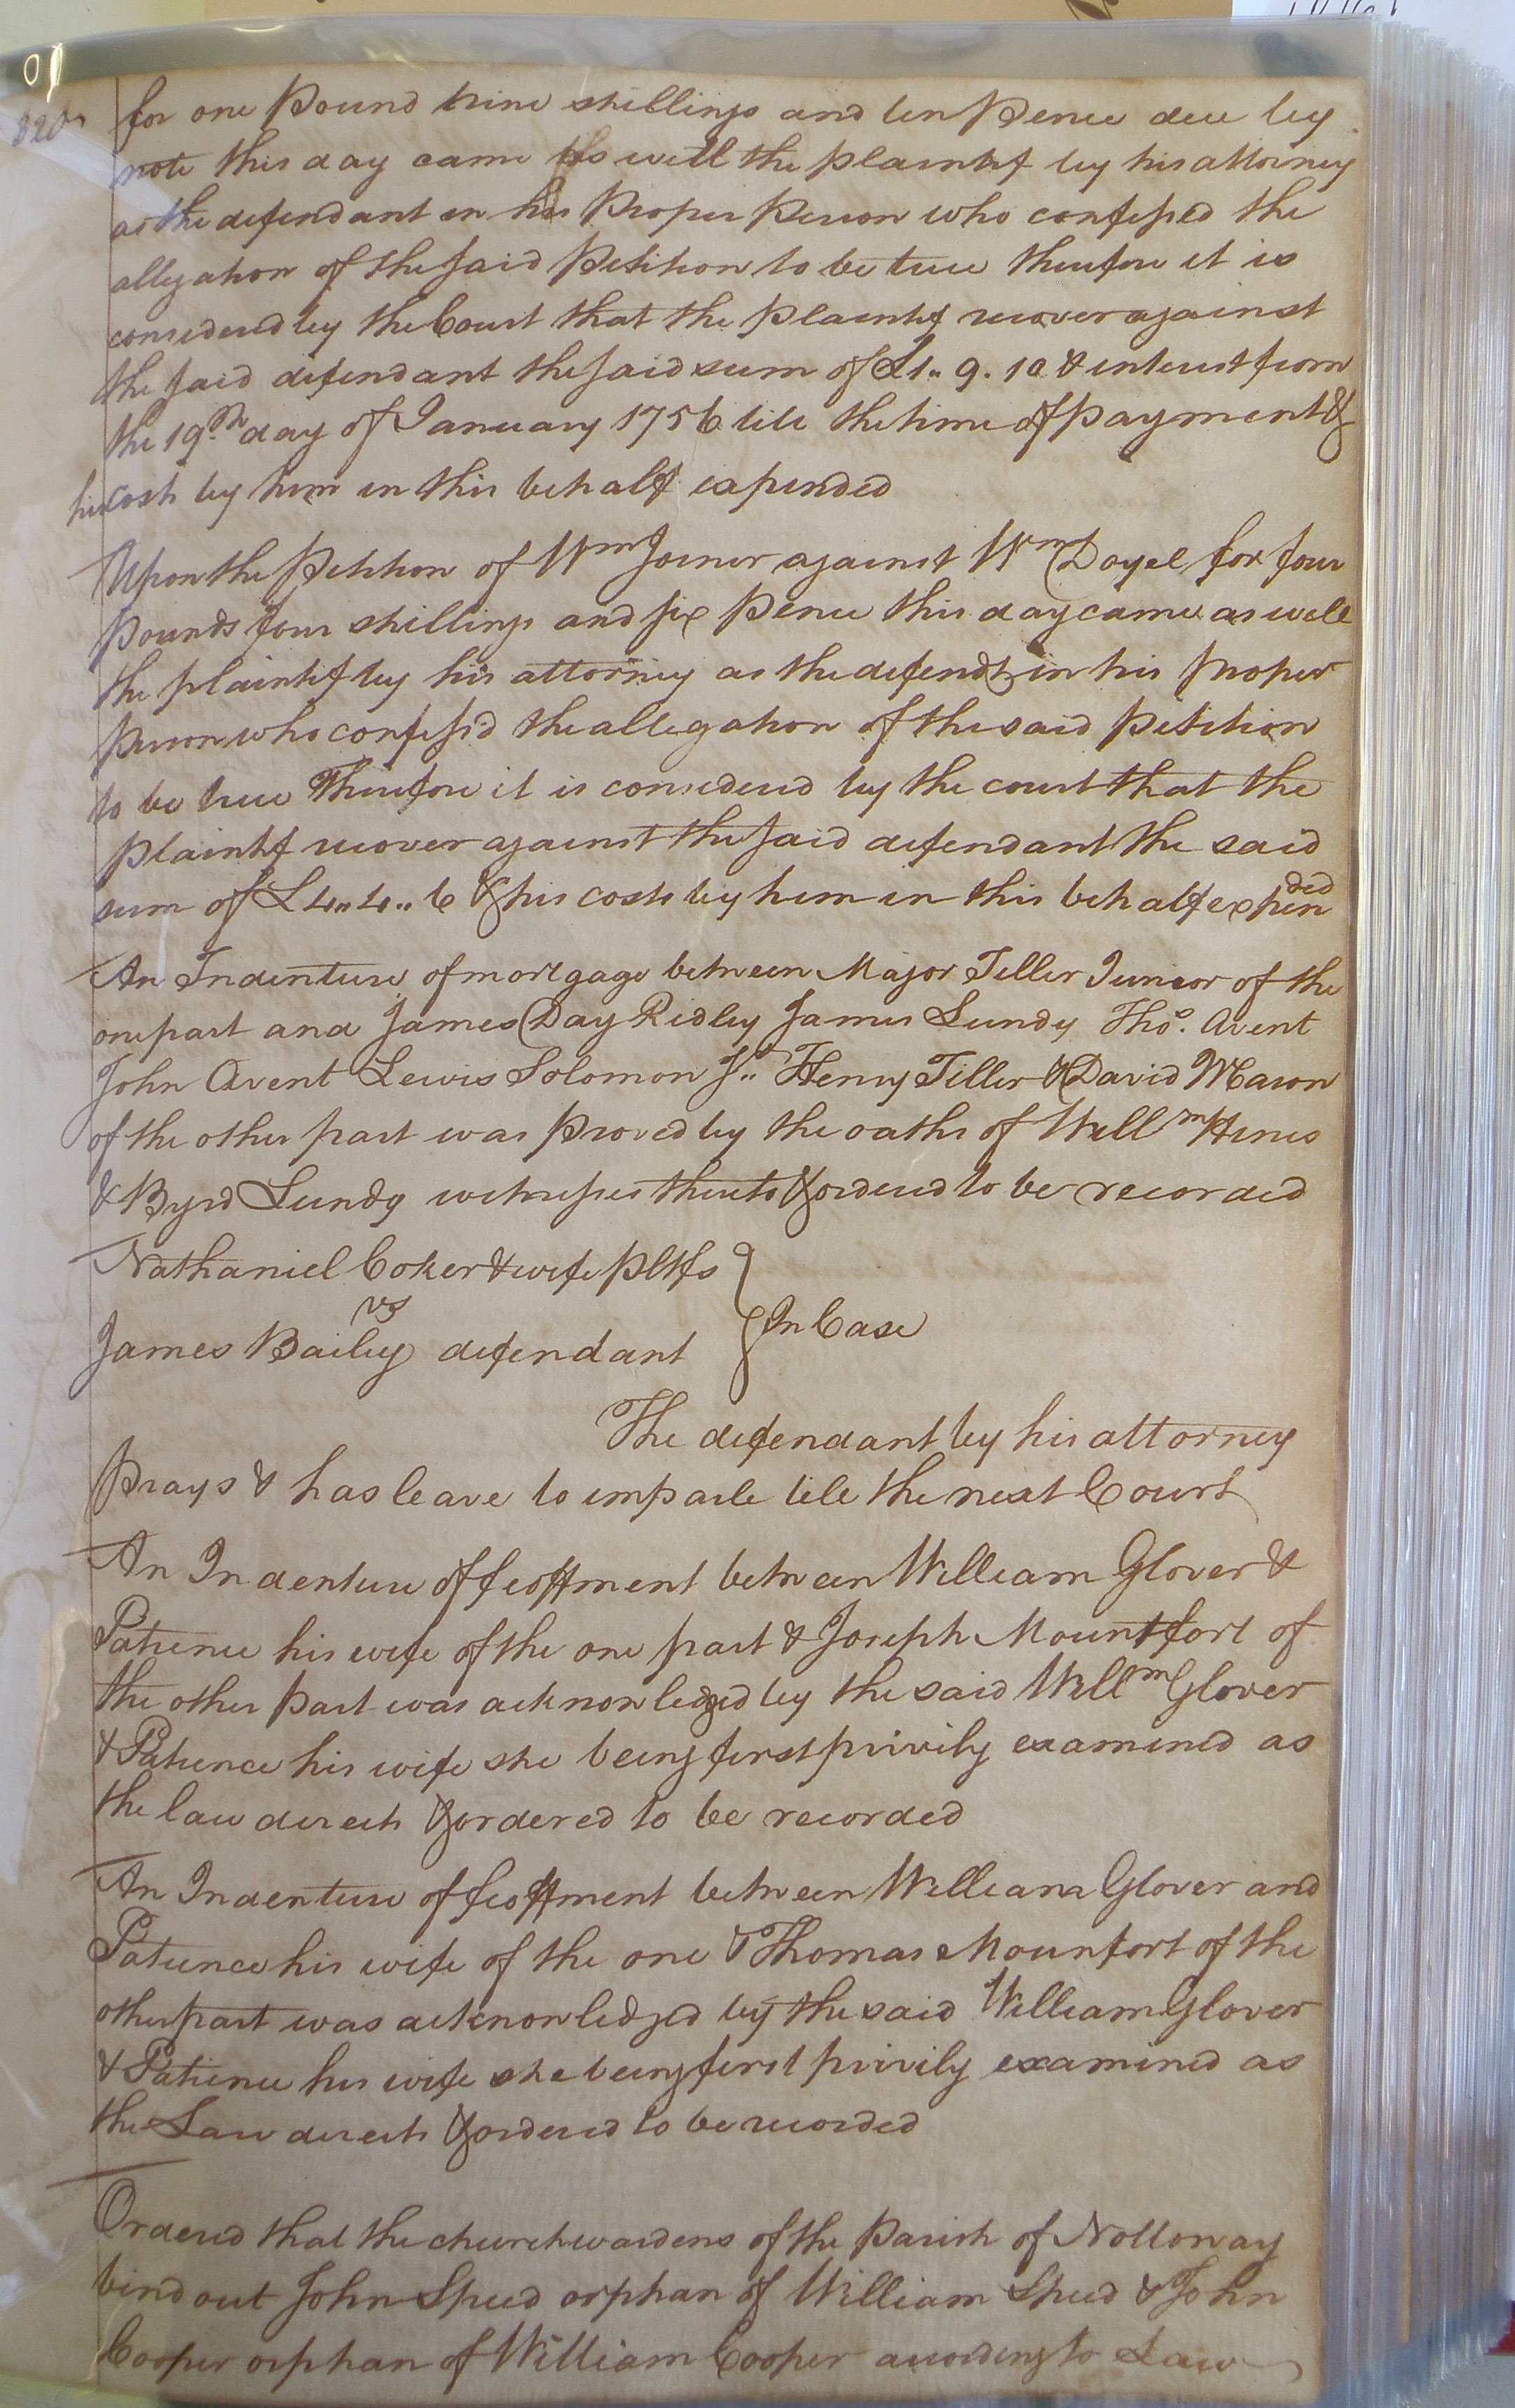 for one Pound nine shillings and ten Pence due by
note this day came as well the plaintif by his attorney
as the defendant in his Proper Person who confessed the
allegation of the said Petition to be true therefore it is
considered by the Court that the plaintif recover against
the said defendant the said sum of £1.. 9. 10 & interest from
the 19th day of January 1756 till the time of payment &
his costs by him in this behalf expended
Upon the Petition of Wm Joiner against Wm Doyel for four
Pounds four shillings and six Pence this day came as well
the plaintif by his attorney as the defendt in his proper
Person who confess'd the allegation of the said Petition
to be true Therefore it is considered by the court that the
plaintif recover against the said defendant the said
sum of £4.. 4.. 6 & his costs by him in this behalf expended
An Indenture of mortgage between Major Tiller Junior of the
one part and James Day Ridley James Lundy Thos. Avent
John Avent Lewis Solomon Jr.. Henry Tiller & David Mason
of the other part was proved by the oaths of Willm Hines
& Byrd Lundy witnesses thereto & ordered to be recorded
Nathaniel Coker & wife Pltfs
vs
In Case
James Bailey defendant
The defendant by his attorney
Prays & has leave to imparle till the next Court
An Indenture of feoffment between William Glover &
Patience his wife of the one part & Joseph Mountfort of
the other Part was acknowledged by the said Willm Glover
& Patience his wife she being first privily examined as
the law directs & ordered to be recorded
An Indenture of feoffment between William Glover and
Patience his wife of the one & Thomas Mounfort of the
other part was acknowledged by the said William Glover
& Patience his wife she being first privily examined as
the Law directs & ordered to be recorded
Ordered that the churchwardens of the Parish of Nottoway
bind out John Speed orphan of William Speed & John
Cooper orphan of William Cooper according to Law